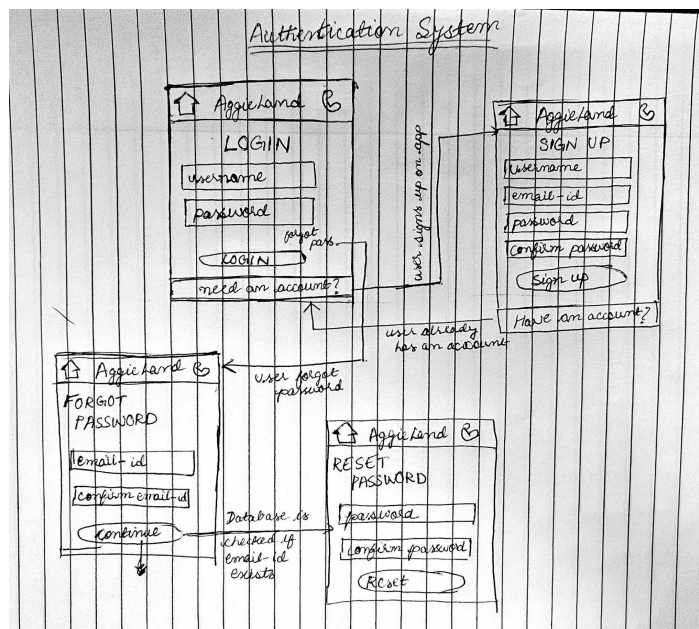 Authentication System
AggieLand
LOGIN
username
password
forgot
pass
LOGIN
need an account?
user signs up on app
AggieLand
SIGN UP
username
email-id
password
confirm password
Sign up
Have an account?
user already
has an account
AggieLand
FORGOT
PASSWORD
email-id
confirm email-id
continue
user forgot
password
Database is
checked if
email-id
exists
AggieLand
RESET
PASSWORD
password
confirm password
Reset